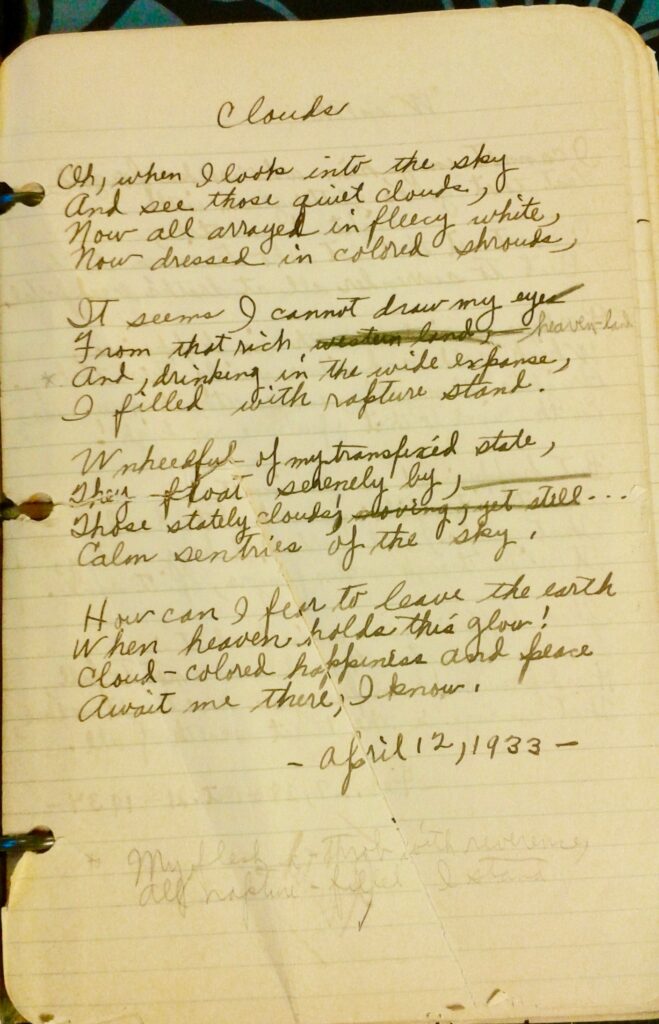 Clouds
Oh, when I look into the sky
And see those quiet clouds,
Now all arrayed in fleecy white,
Now dressed in colored shrouds,
It seems I cannot draw my eyes
From that rich western land, heaven-land
* And, drinking in the wide expanse,
I filled with rapture stand.
Unheedful of my transfixed state,
They float serenely by,
Those stately clouds, moving, yet still...
Calm sentries of the sky.
How can I fear to leave the earth
When heaven holds this glow!
Cloud-colored happiness and peace
Await me there, I know.
- April 12, 1933 -
* My with reverence,
All rapture-filled I stand